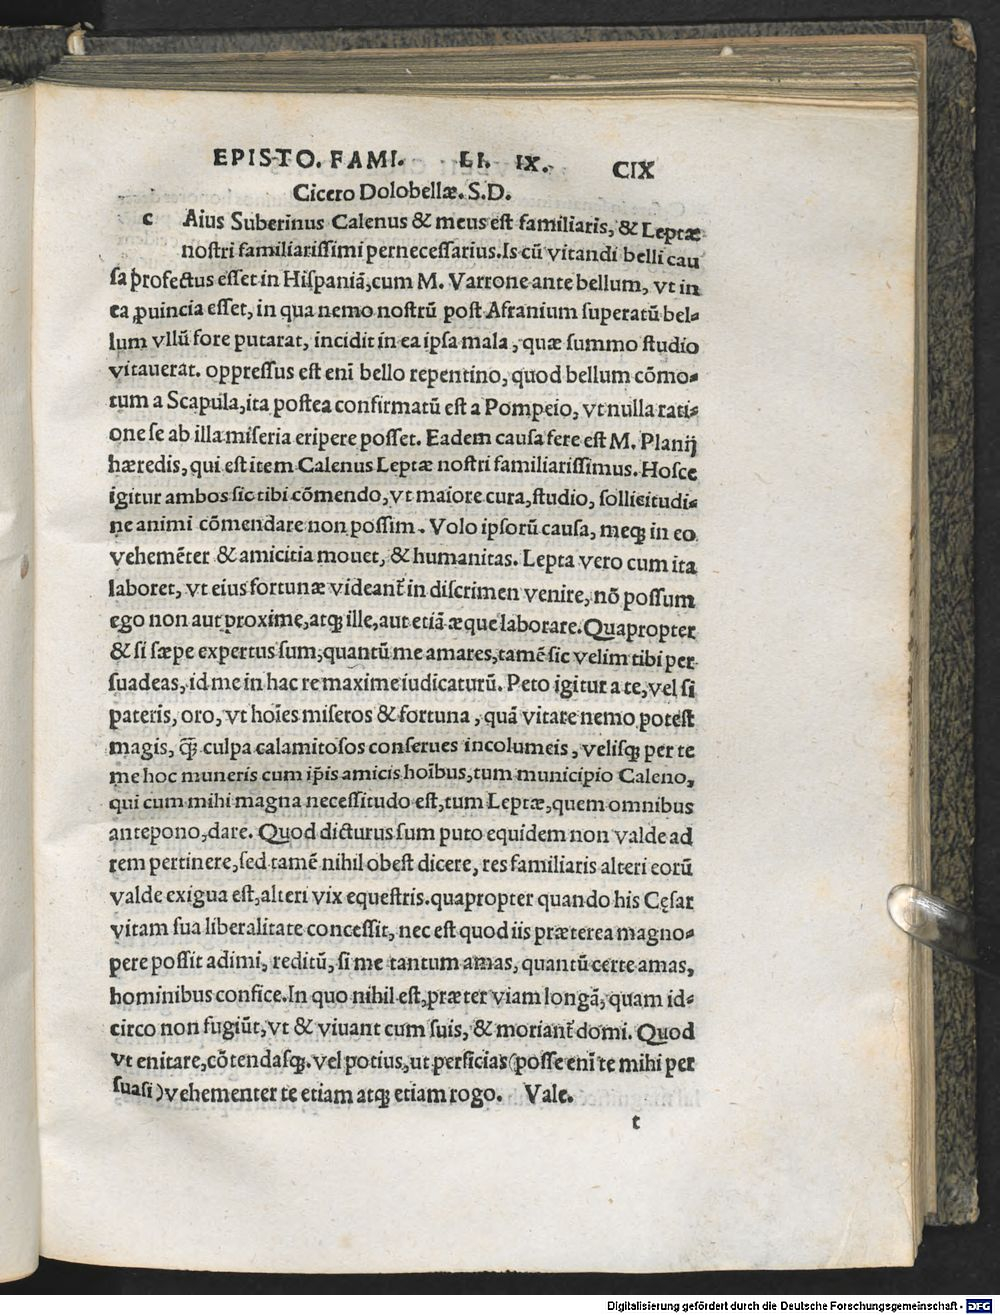 EPISTO. FAMI. LI. IX. CIX
Cicero Dolobellæ. S.D.
c Aius Suberinus Calenus & meus est familiaris, & Leptæ
nostri familiarissimi pernecessarius. Is cū vitandi belli cau
sa ꝓfectus esset in Hispaniā, cum M. Varrone ante bellum, vt in
ea ꝓuincia esset, in qua nemo nostrū post Afranium superatū bel⸗
lum vllū fore putarat, incidit in ea ipsa mala, quæ summo studio
vitauerat. oppressus est enī bello repentino, quod bellum cōmo⸗
tum a Scapula, ita postea confirmatū est a Pompeio, vt nulla rati⸗
one se ab illa miseria eripere posset. Eadem causa fere est M. Planij
hæredis, qui est item Calenus Leptæ nostri familiarissimus. Hosce
igitur ambos sic tibi cōmendo, vt maiore cura, studio, sollicitudi⸗
ne animi cōmendare non possim. Volo ipsorū causa, meqꝫ in eo
vehemēter & amicitia mouet, & humanitas. Lepta vero cum ita
laboret, vt eius fortunæ videant᷑ in discrimen venire, nō possum
ego non aut proxime, atqꝫ ille, aut etiā æque laborare. Quapropter
& si sæpe expertus sum, quantū me amares, tamē sic velim tibi per
suadeas, id me in hac re maxime iudicaturū. Peto igitur a te, vel si
pateris, oro, vt hoīes miseros & fortuna, quā vitare nemo potest
magis, q̄ꝫ culpa calamitosos conserues incolumeis, velisqꝫ per te
me hoc muneris cum ip̄is amicis hoībus, tum municipio Caleno,
qui cum mihi magna necessitudo est, tum Leptæ, quem omnibus
antepono, dare. Quod dicturus sum puto equidem non valde ad
rem pertinere, sed tamē nihil obest dicere, res familiaris alteri eorū
valde exigua est, alteri vix equestris. quapropter quando his Cęsar
vitam sua liberalitate concessit, nec est quod iis præterea magno⸗
pere possit adimi, reditū, si me tantum amas, quantū certe amas,
hominibus confice. In quo nihil est, præter viam longā, quam id⸗
circo non fugiūt, vt & viuant cum suis, & moriant᷑ domi. Quod
vt enitare, cōtendasqꝫ. vel potius, ut perficias (posse enī te mihi per
suasi) vehementer te etiam atqꝫ etiam rogo. Vale.
t
Digitalisierung gefördert durch die Deutsche Forschungsgemeinschaft - DFG